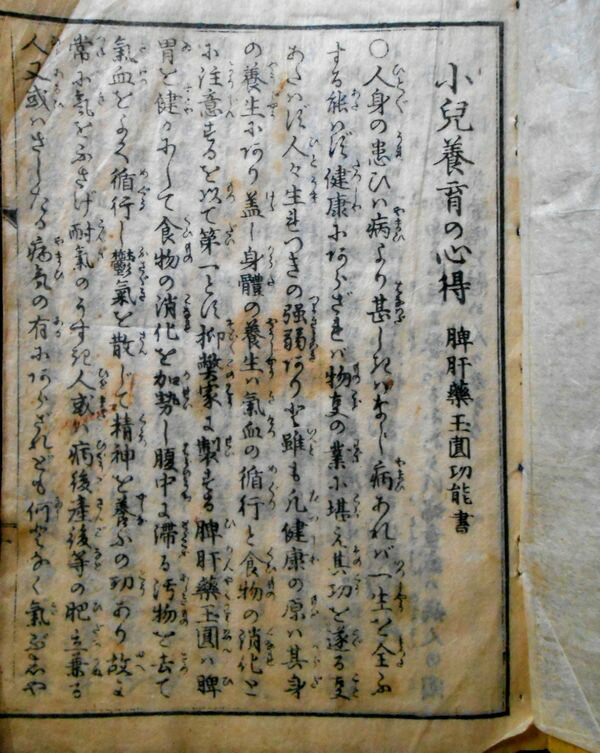 小兒養育の心得 脾肝藥王圓功能書
〇人身の患ひハ病より甚しきハなし病あれバ一生を全ふ
する能ハず健康にあらざれバ物事の業に堪え其功を遂る事
あたハず人々生れつきの强弱あり と雖も凡健康の原ハ其身
の養生にあり蓋し身體の養生ハ氣血の循行と食物の消化と
に注意するを以て第一とす抑弊家に製する脾肝藥王圓ハ脾
胃を健かにして食物の消化を加勢し腹中に滯る汚物を去て
氣血をよく循行し鬱氣を散じて精神を養ふの功あり故に
常に氣をふさげ耐氣のうすき人或ハ病後產後等の肥立兼る
人又或ハさしたる病気の有にあらざれども何となく氣ぶしや